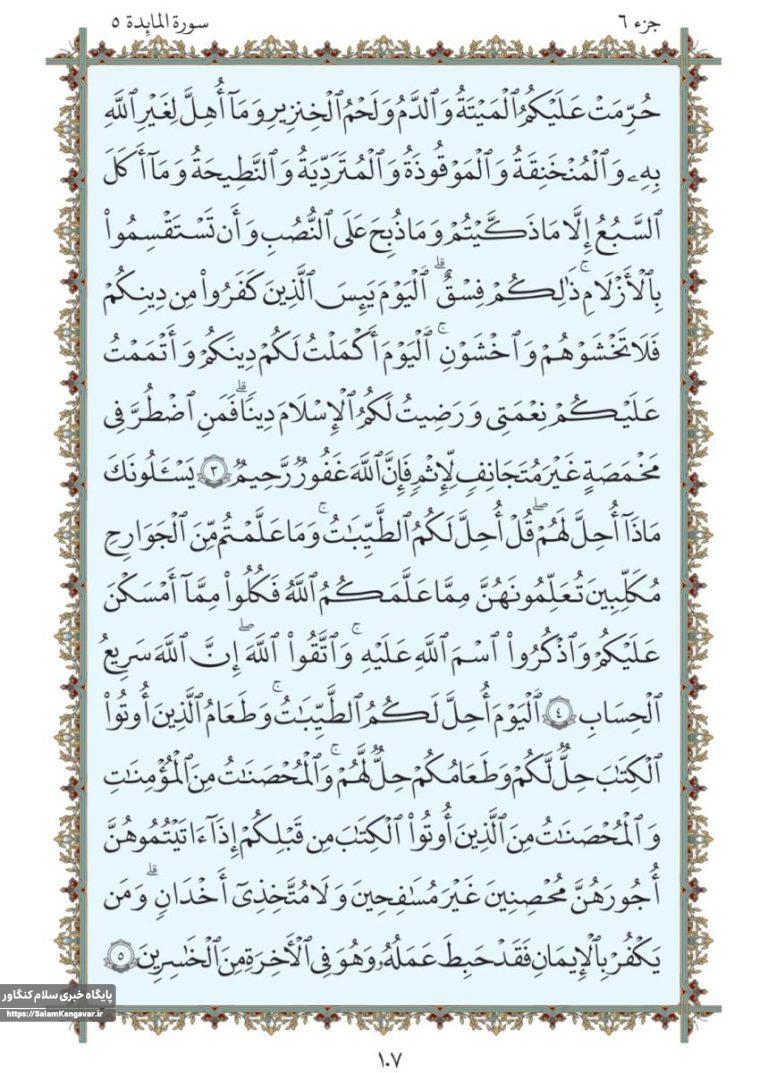 جزء ٦
سورة المائدة ٥
حُرِّمَتْ عَلَيْكُمُ ٱلْمَيْتَةُ وَٱلدَّمُ وَلَحْمُ ٱلْخِنزِيرِ وَمَآ أُهِلَّ لِغَيْرِ ٱللَّهِ
بِهِۦ وَٱلْمُنْخَنِقَةُ وَٱلْمَوْقُوذَةُ وَٱلْمُتَرَدِّيَةُ وَٱلنَّطِيحَةُ وَمَآ أَكَلَ
ٱلسَّبُعُ إِلَّا مَا ذَكَّيْتُمْ وَمَا ذُبِحَ عَلَى ٱلنُّصُبِ وَأَن تَسْتَقْسِمُوا۟
بِٱلْأَزْلَٰمِ ۚ ذَٰلِكُمْ فِسْقٌ ۗ ٱلْيَوْمَ يَئِسَ ٱلَّذِينَ كَفَرُوا۟ مِن دِينِكُمْ
فَلَا تَخْشَوْهُمْ وَٱخْشَوْنِ ۚ ٱلْيَوْمَ أَكْمَلْتُ لَكُمْ دِينَكُمْ وَأَتْمَمْتُ
عَلَيْكُمْ نِعْمَتِى وَرَضِيتُ لَكُمُ ٱلْإِسْلَٰمَ دِينًا ۗ فَمَنِ ٱضْطُرَّ فِى
مَخْمَصَةٍ غَيْرَ مُتَجَانِفٍ لِّإِثْمٍ فَإِنَّ ٱللَّهَ غَفُورٌ رَّحِيمٌ ٣ يَسْـَٔلُونَكَ
مَاذَآ أُحِلَّ لَهُمْ ۖ قُلْ أُحِلَّ لَكُمُ ٱلطَّيِّبَٰتُ ۙ وَمَا عَلَّمْتُم مِّنَ ٱلْجَوَارِحِ
مُكَلِّبِينَ تُعَلِّمُونَهُنَّ مِمَّا عَلَّمَكُمُ ٱللَّهُ فَكُلُوا۟ مِمَّآ أَمْسَكْنَ
عَلَيْكُمْ وَٱذْكُرُوا۟ ٱسْمَ ٱللَّهِ عَلَيْهِ ۚ وَٱتَّقُوا۟ ٱللَّهَ ۖ إِنَّ ٱللَّهَ سَرِيعُ
ٱلْحِسَابِ ٤ ٱلْيَوْمَ أُحِلَّ لَكُمُ ٱلطَّيِّبَٰتُ ۖ وَطَعَامُ ٱلَّذِينَ أُوتُوا۟
ٱلْكِتَٰبَ حِلٌّ لَّكُمْ وَطَعَامُكُمْ حِلٌّ لَّهُمْ ۖ وَٱلْمُحْصَنَٰتُ مِنَ ٱلْمُؤْمِنَٰتِ
وَٱلْمُحْصَنَٰتُ مِنَ ٱلَّذِينَ أُوتُوا۟ ٱلْكِتَٰبَ مِن قَبْلِكُمْ إِذَآ ءَاتَيْتُمُوهُنَّ
أُجُورَهُنَّ مُحْصِنِينَ غَيْرَ مُسَٰفِحِينَ وَلَا مُتَّخِذِىٓ أَخْدَانٍ ۗ وَمَن
يَكْفُرْ بِٱلْإِيمَٰنِ فَقَدْ حَبِطَ عَمَلُهُۥ وَهُوَ فِى ٱلْأَخِرَةِ مِنَ ٱلْخَٰسِرِينَ ٥
پایگاه خبری سلام کنگاور
https://SalamKangavar.ir
١٠٧